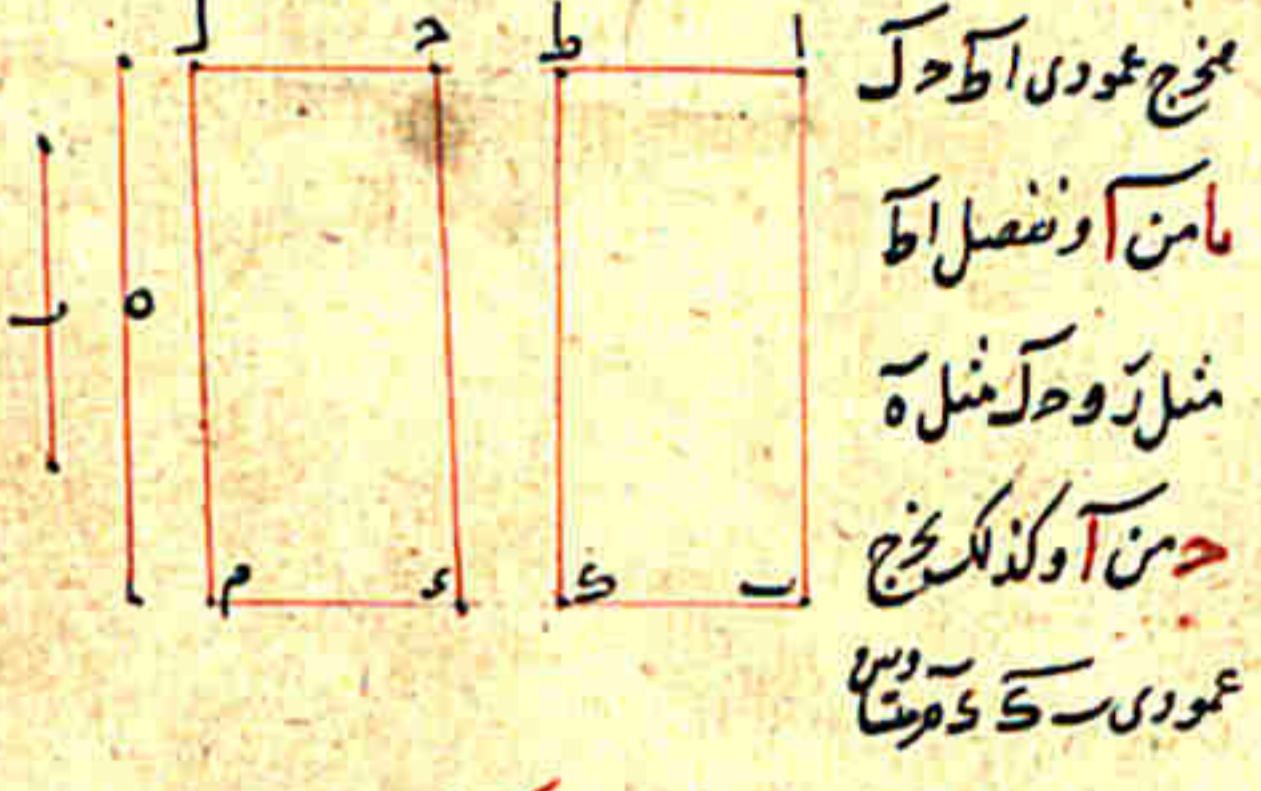 فنخرج عمودى اط حل
يا من آ ونفصل اط
مثل ر وحل مثل ه
ح من آ وكذلك نخرج
عمودى ب ك ء م متساويين
ل
ح
ط
ا
ر
ه
م
ء
ك
ب